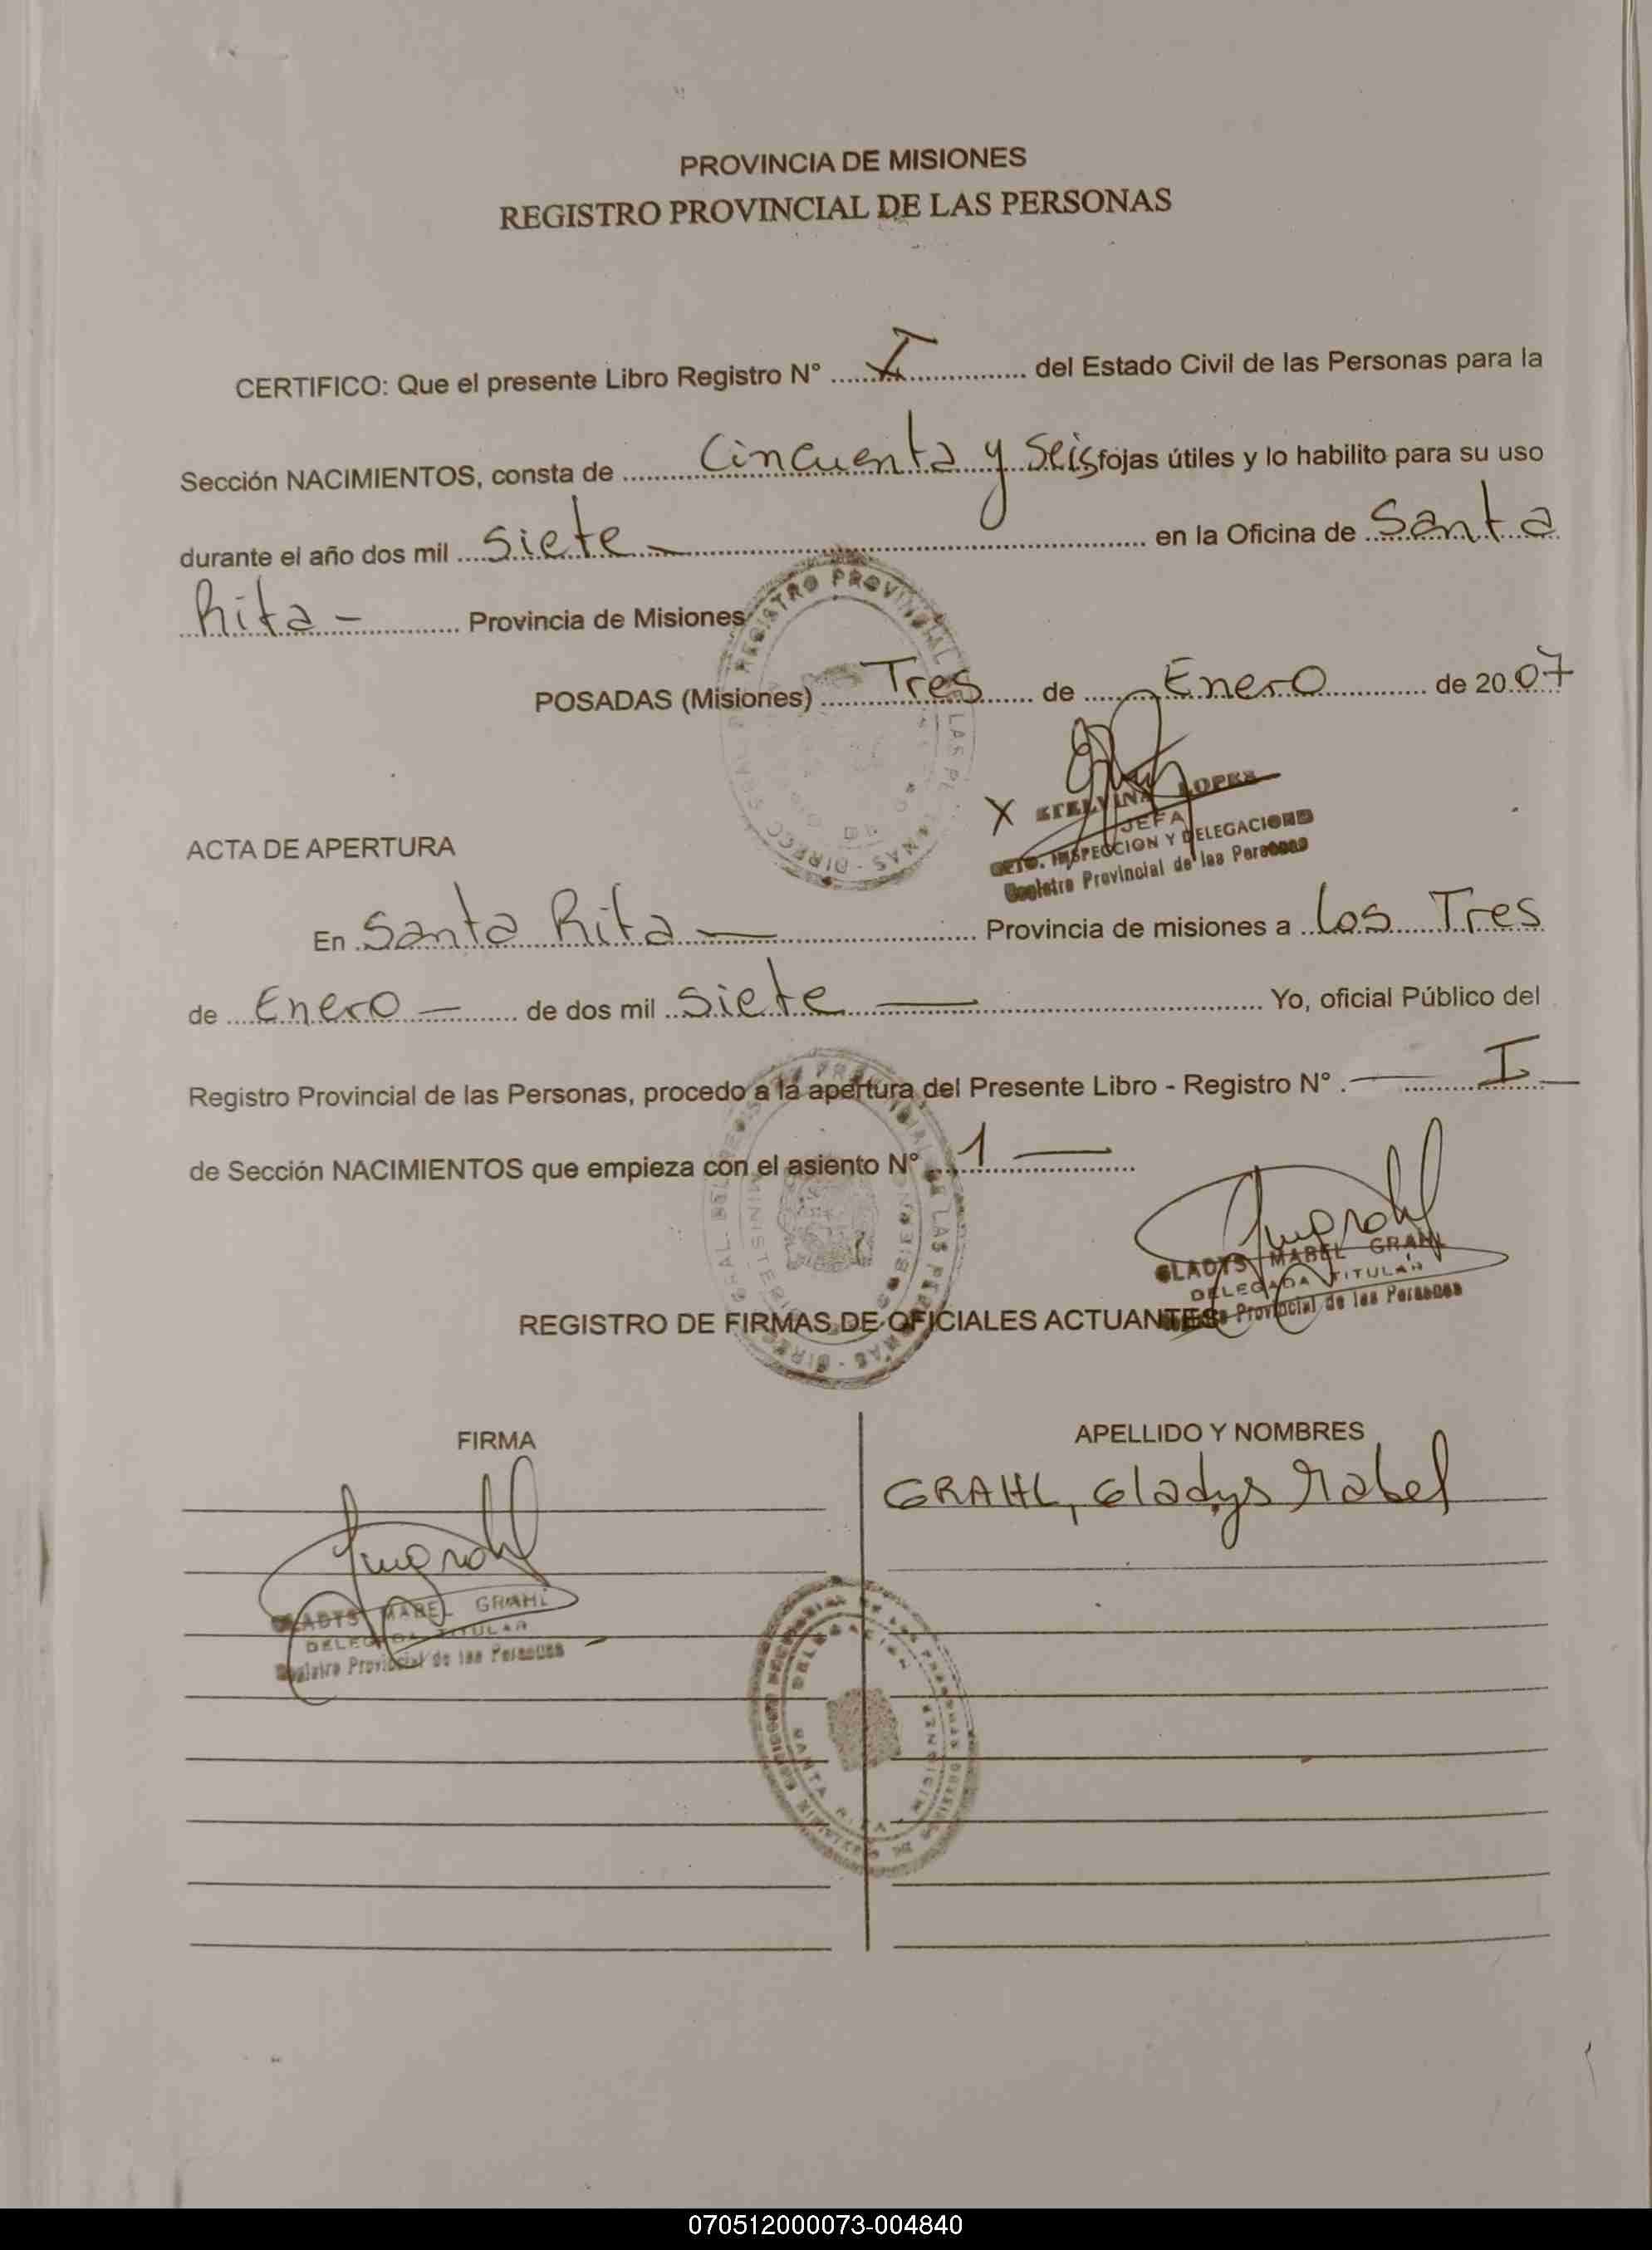 PROVINCIA DE MISIONES
REGISTRO PROVINCIAL DE LAS PERSONAS
CERTIFICO: Que el presente Libro Registro N° I del Estado Civil de las Personas para la
Sección NACIMIENTOS, consta de Cincuenta y Seis fojas útiles y lo habilito para su uso
durante el año dos mil Siete — en la Oficina de Santa
Rita - Provincia de Misiones
POSADAS (Misiones) Tres de Enero de 2007
X ETELVINA LOPEZ
JEFA
DPTO. INSPECCION Y DELEGACIONES
Registro Provincial de las Personas
ACTA DE APERTURA
En Santa Rita — Provincia de misiones a los Tres
de Enero — de dos mil Siete — Yo, oficial Público del
Registro Provincial de las Personas, procedo a la apertura del Presente Libro - Registro N° — I —
de Sección NACIMIENTOS que empieza con el asiento N° 1 —
GLADYS MABEL GRAHL
DELEGADA TITULAR
Registro Provincial de las Personas
REGISTRO DE FIRMAS DE OFICIALES ACTUANTES
FIRMA APELLIDO Y NOMBRES
GRAHL, Gladys Mabel
GLADYS MABEL GRAHL
DELEGADA TITULAR
Registro Provincial de las Personas
070512000073-004840